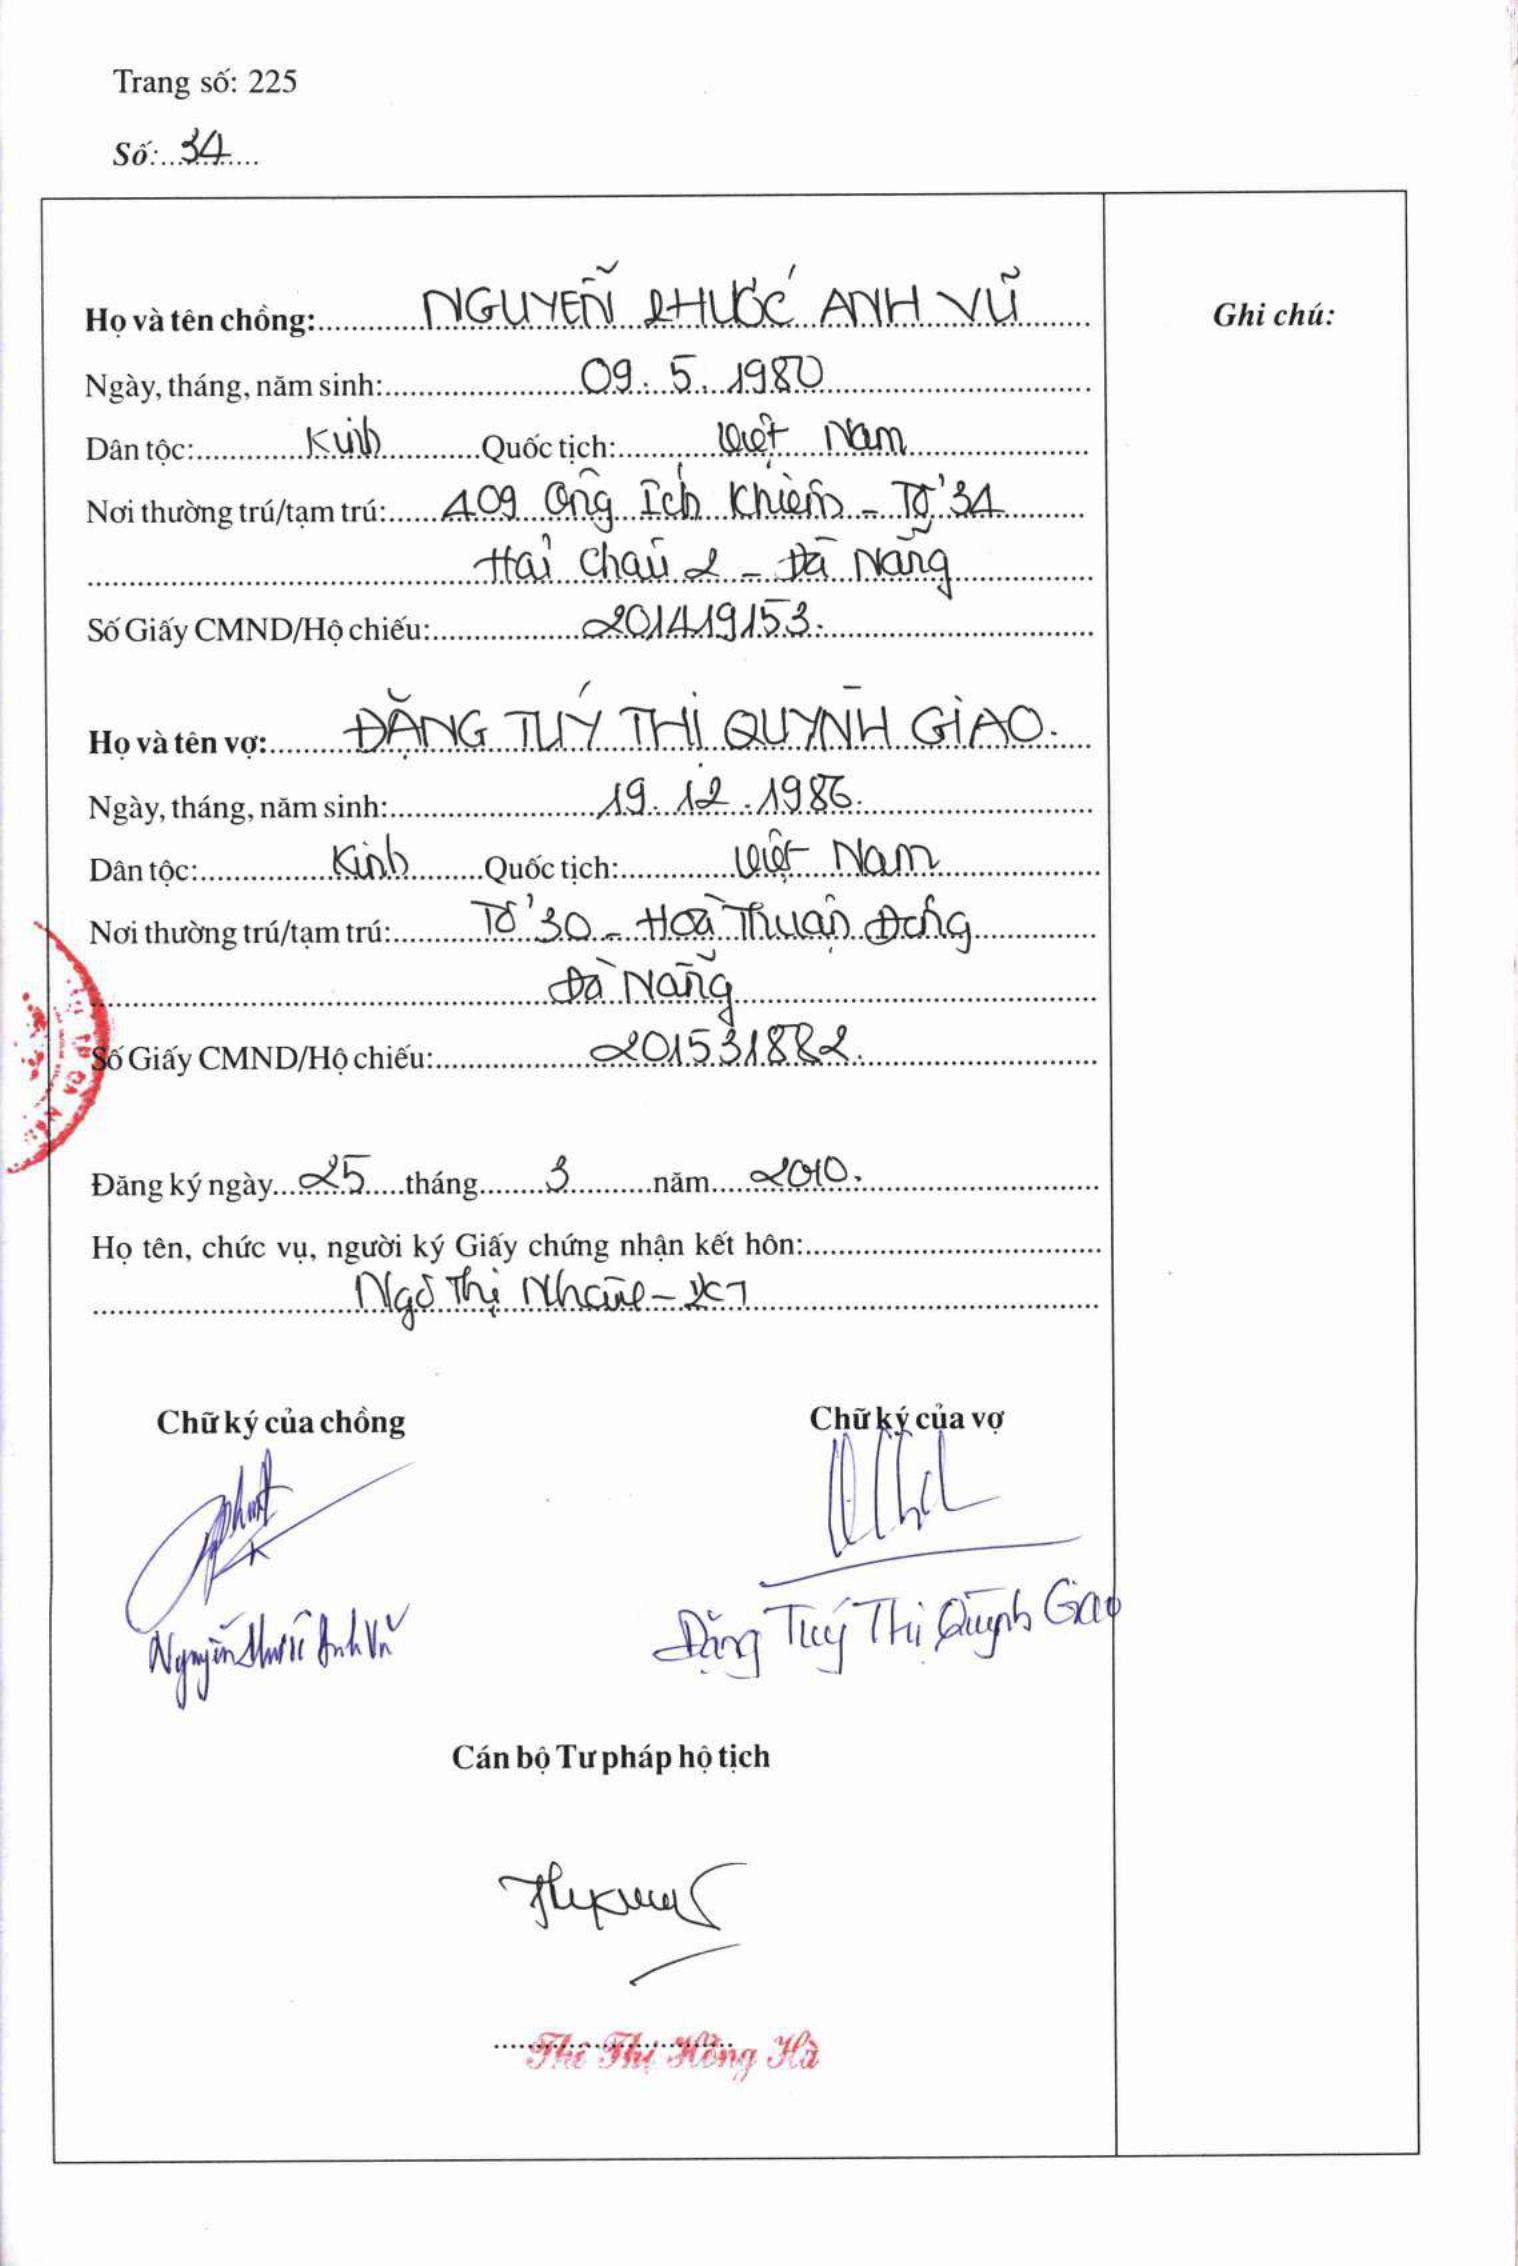 Trang số: 225
Số: 34
Họ và tên chồng: NGUYỄN PHƯỚC ANH VŨ
Ghi chú:
Ngày, tháng, năm sinh: 09. 5. 1980
Dân tộc: Kinh Quốc tịch: Việt Nam
Nơi thường trú/tạm trú: 409 Ông Ích Khiêm - Tổ 34
Hải Châu 2 - Đà Nẵng
Số Giấy CMND/Hộ chiếu: 201419153.
Họ và tên vợ: ĐẶNG TUÝ THỊ QUỲNH GIAO.
Ngày, tháng, năm sinh: 19. 12. 1986.
Dân tộc: Kinh Quốc tịch: Việt Nam
Nơi thường trú/tạm trú: Tổ 30 - Hoà Thuận Đông
Đà Nẵng
Số Giấy CMND/Hộ chiếu: 201531882.
Đăng ký ngày 25 tháng 3 năm 2010.
Họ tên, chức vụ, người ký Giấy chứng nhận kết hôn:
Ngô Thị
Chữ ký của chồng Chữ ký của vợ
Nguyễn Phước Anh Vũ
Đặng Tuý Thị Quỳnh Giao
Cán bộ Tư pháp hộ tịch
Thị Hồng Hà